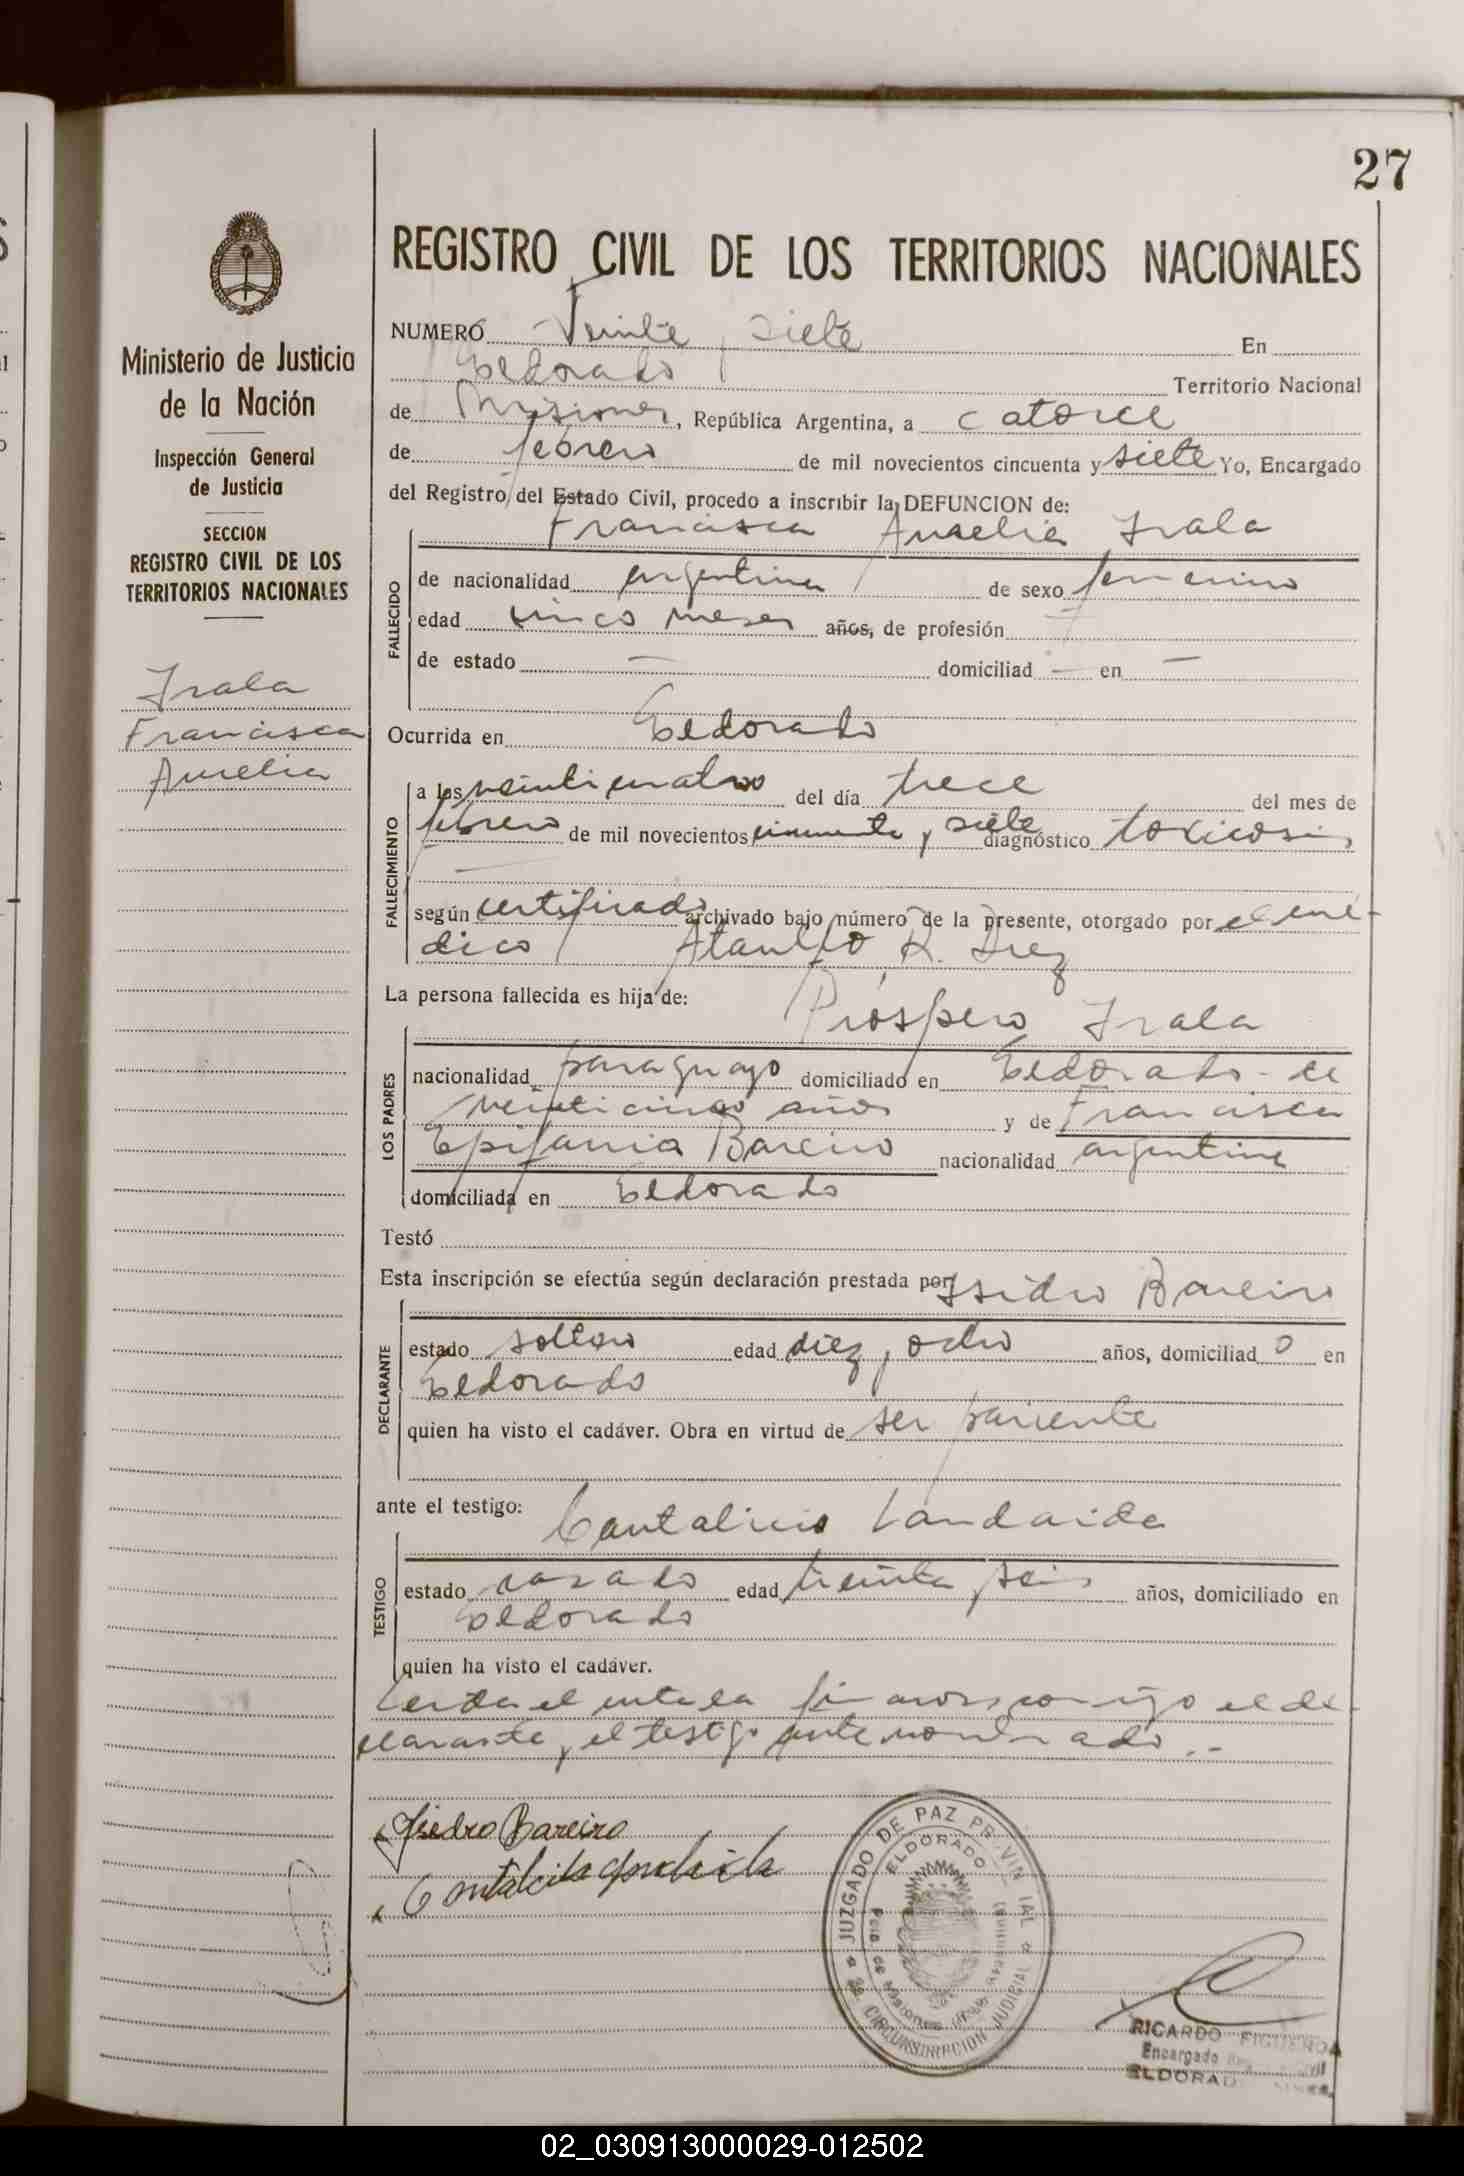 27
Ministerio de Justicia
de la Nación
Inspección General
de Justicia
SECCION
REGISTRO CIVIL DE LOS
TERRITORIOS NACIONALES
Irala
Francisca
Aurelia
REGISTRO CIVIL DE LOS TERRITORIOS NACIONALES
NUMERO Veinte y siete En
Eldorado Territorio Nacional
de Misiones, República Argentina, a catorce
de febrero de mil novecientos cincuenta y siete Yo, Encargado
del Registro del Estado Civil, procedo a inscribir la DEFUNCION de:
Francisca Aurelia Irala
FALLECIDO
de nacionalidad argentina de sexo femenino
edad cinco meses años, de profesión —
de estado — domiciliad — en —
Ocurrida en Eldorado
FALLECIMIENTO
a las veinticuatro del día trece del mes de
febrero de mil novecientos cincuenta y siete diagnóstico toxicosis
—
según certificado archivado bajo número de la presente, otorgado por el mé-
dico R. Diez
La persona fallecida es hija de: Próspero Irala
LOS PADRES
nacionalidad paraguayo domiciliado en Eldorado - de
veinticinco años y de Francisca
Epifania Bareiro nacionalidad argentina
domiciliada en Eldorado
Testó
Esta inscripción se efectúa según declaración prestada por Isidro Bareiro
DECLARANTE
estado soltero edad diez y ocho años, domiciliad o en
Eldorado
quien ha visto el cadáver. Obra en virtud de ser pariente
ante el testigo: Cantalicio Landaida
TESTIGO
estado casado edad treinta y seis años, domiciliado en
Eldorado
quien ha visto el cadáver.
Leida el acta la firmaron conmigo el de-
clarante y el testigo ante nombrado.-
Isidro Bareiro
JUZGADO DE PAZ PROVINCIAL
ELDORADO
Pcia. de Misiones
CIRCUNSCRIPCION JUDICIAL
RICARDO FIGUEROA
Encargado
ELDORADO
02_030913000029-012502